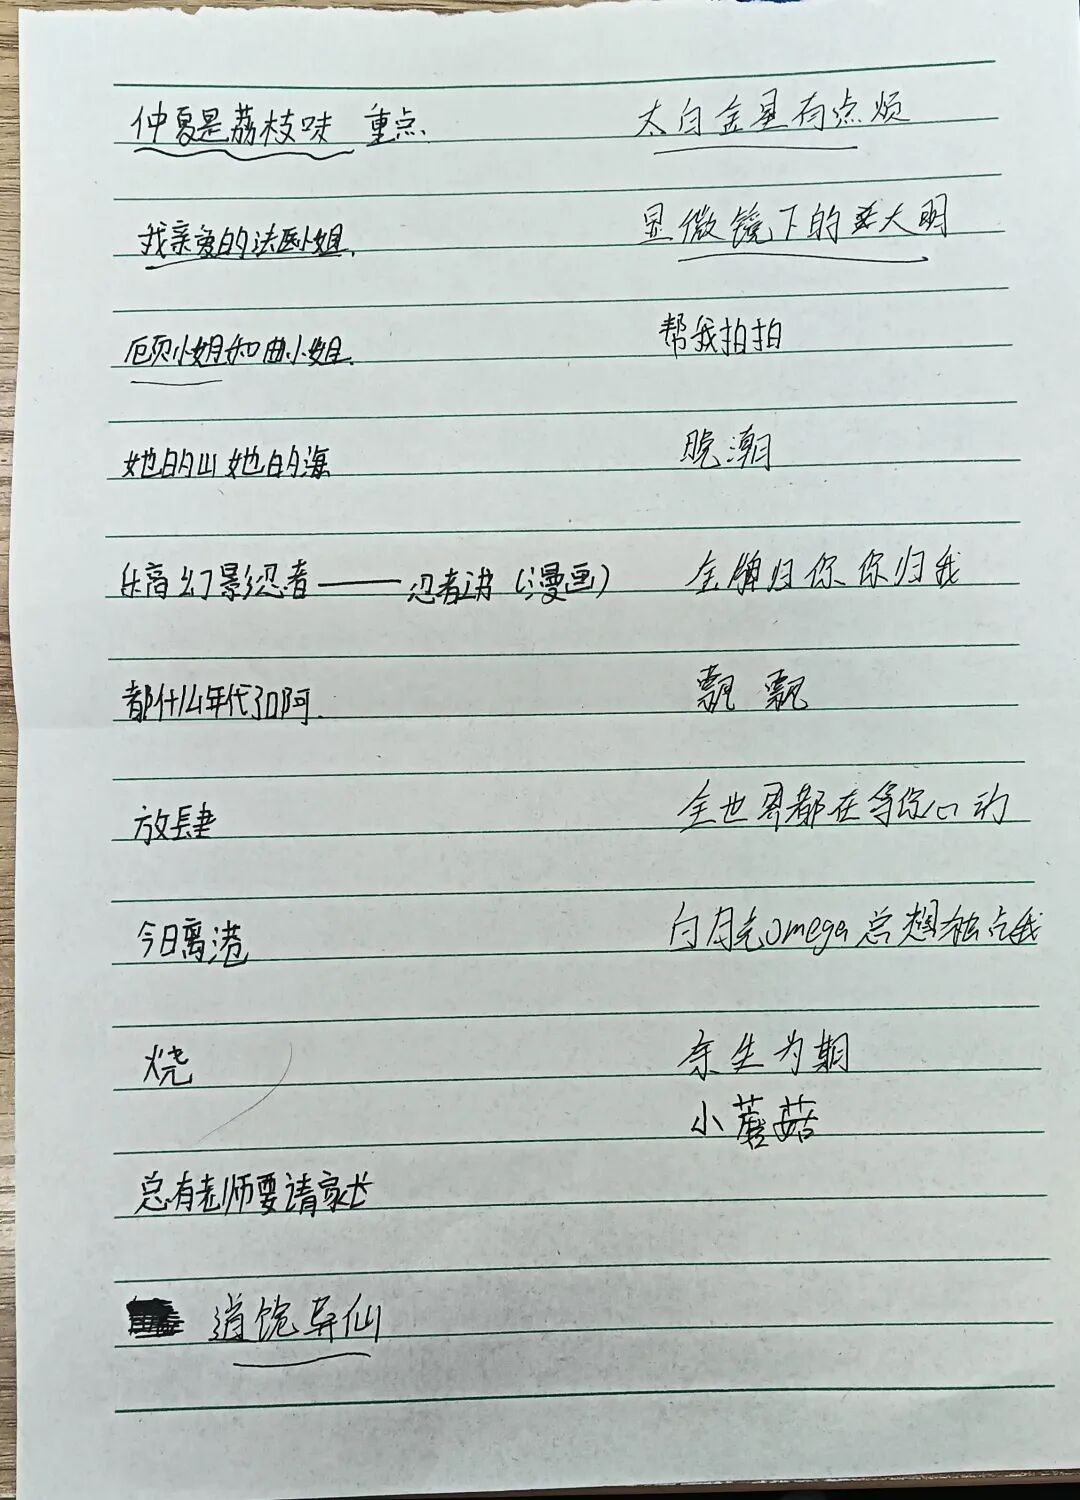 仲夏是荔枝味 重点.
我亲爱的法医小姐.
顾小姐和曲小姐.
她的山她的海
乐高幻影忍者——忍者讲（漫画）
都什么年代了啊.
放肆
今日离港
烧
总有老师要请家长
逍饶异仙
太白金星有点烦
显微镜下的大明
帮我拍拍
晚潮
金牌归你、你归我
飘飘
全世界都在等你心动
白月光omega总想独占我
余生为期
小蘑菇